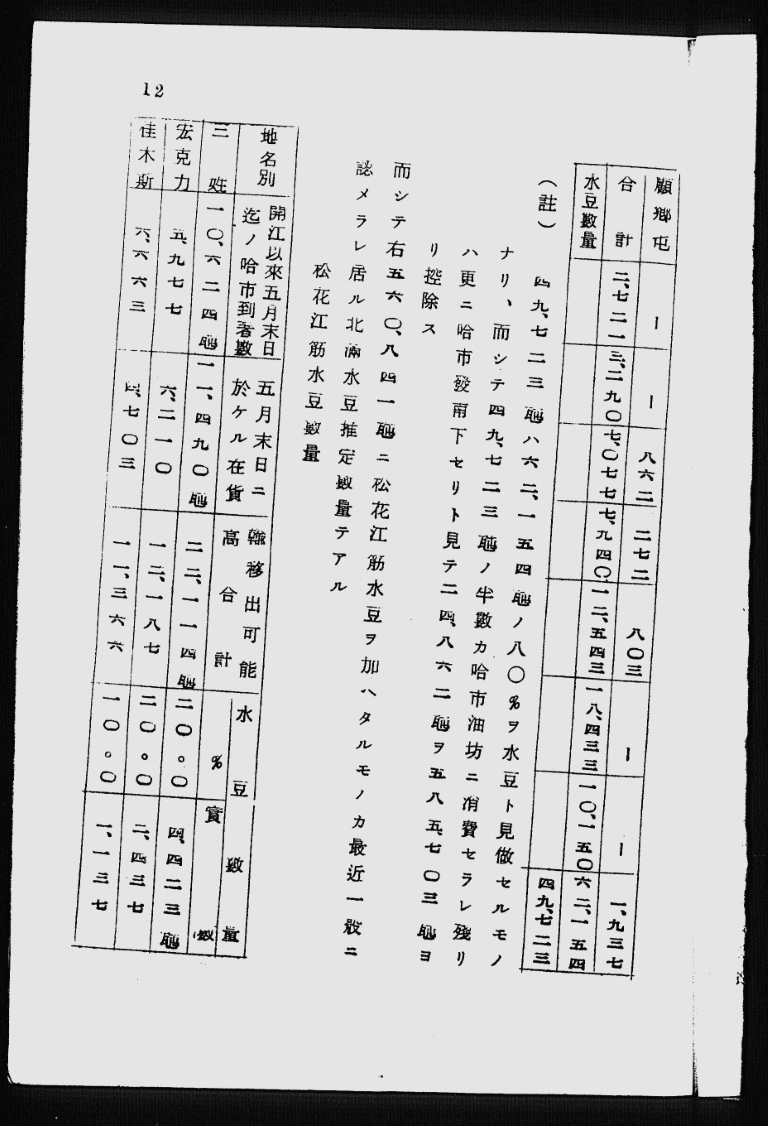 顧鄕屯 ー ー 八六二 二七二 八〇三 ー ー 一、九三七
合計 二、七二一 三、二九〇 七、〇七七 七、九四〇 一二、五四三 一八、四三三 一〇、一五〇 六二、一五四
水豆數量 四九、七二三
(註) 四九、七二三瓲ハ六二、一五四瓲ノ八〇%ヲ水豆ト見做セルモノ
ナリ、而シテ四九、七二三瓲ノ半數カ哈市油坊ニ消費セラレ殘リ
ハ更ニ哈市發南下セリト見テ二四、八六二瓲ヲ五八五、七〇三瓲ヨ
リ控除ス
而シテ右五六〇、八四一瓲ニ松花江筋水豆ヲ加ヘタルモノカ最近一般ニ
認メラレ居ル北滿水豆推定數量テアル
松花江筋水豆數量
地名別 開江以來五月末日迄ノ哈市到著數 五月末日ニ於ケル在貨 輸移出可能高合計 水豆數量 % 實數
三姓 一〇、六二四瓲 一一、四九〇瓲 二二、一一四瓲 二〇。〇 四、四二三瓲
宏克力 五、九七七 六、二一〇 一二、一八七 二〇。〇 二、四三七
佳木斯 六、六六三 四、七〇三 一一、三六六 一〇。〇 一、一三七
12